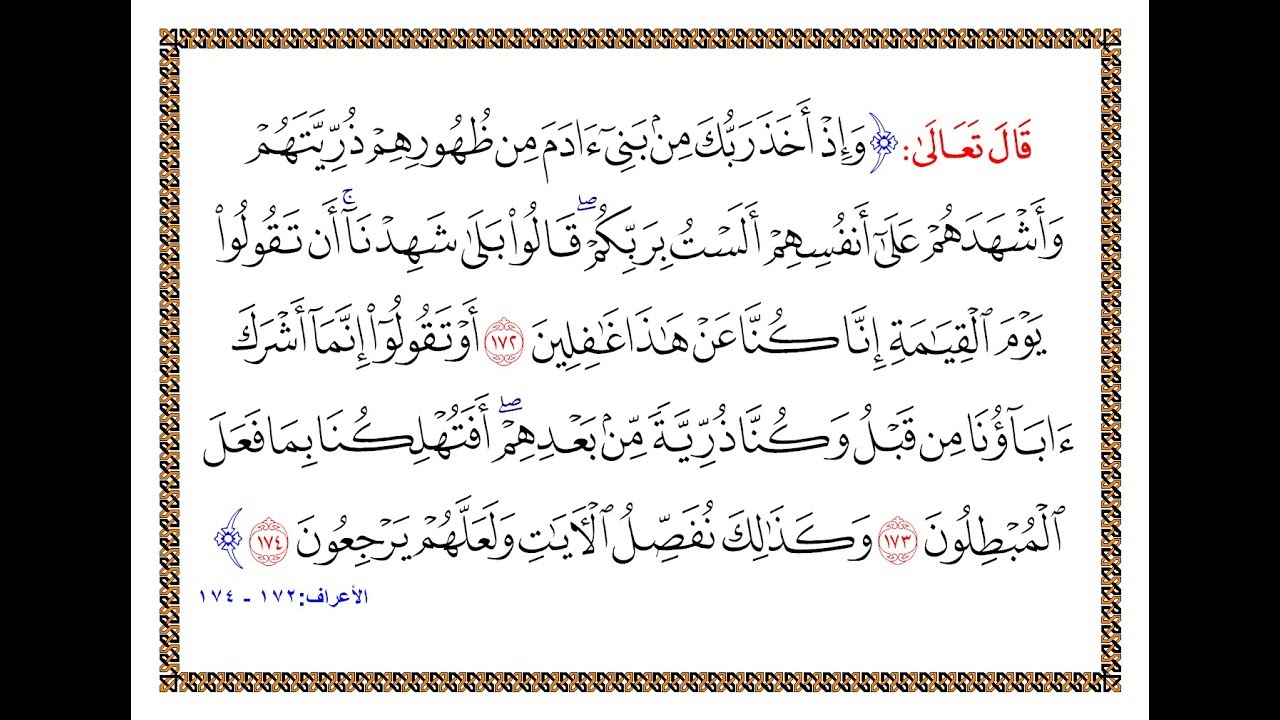 قَالَ تَعَالَىٰ: ﴿وَإِذْ أَخَذَ رَبُّكَ مِنۢ بَنِىٓ ءَادَمَ مِن ظُهُورِهِمْ ذُرِّيَّتَهُمْ
وَأَشْهَدَهُمْ عَلَىٰٓ أَنفُسِهِمْ أَلَسْتُ بِرَبِّكُمْ ۖ قَالُوا۟ بَلَىٰ شَهِدْنَآ ۚ أَن تَقُولُوا۟
يَوْمَ ٱلْقِيَـٰمَةِ إِنَّا كُنَّا عَنْ هَـٰذَا غَـٰفِلِينَ ١٧٢ أَوْ تَقُولُوٓا۟ إِنَّمَآ أَشْرَكَ
ءَابَآؤُنَا مِن قَبْلُ وَكُنَّا ذُرِّيَّةً مِّنۢ بَعْدِهِمْ ۖ أَفَتُهْلِكُنَا بِمَا فَعَلَ
ٱلْمُبْطِلُونَ ١٧٣ وَكَذَٰلِكَ نُفَصِّلُ ٱلْـَٔايَـٰتِ وَلَعَلَّهُمْ يَرْجِعُونَ ١٧٤ ﴾
الأعراف: ١٧٢ - ١٧٤